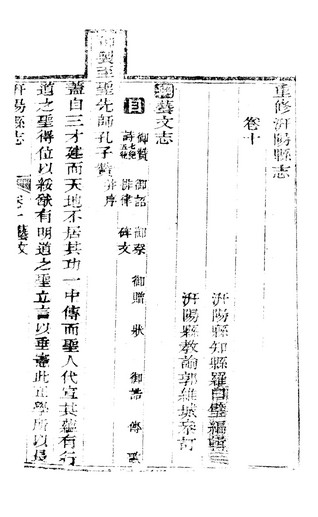 重修汧陽縣志
卷十
汧陽縣知縣羅曰璧編輯
汧陽縣教諭郭維城參訂
藝文志
目 御贊 御詔 御祭 御贈 狀 御誥 傳
詩 排律 碑文
製至聖先師孔子贊并序
蓋自三才建而天地不居其功一中傳而聖人代宣其蘊有行
道之聖得位以綏猷有明道之聖立言以垂憲此正學所以長
汧陽縣志 卷十藝文